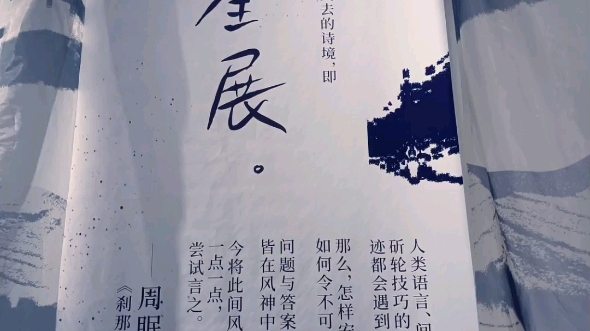 去的诗境，即
展。
人类语言、
斫轮技巧的
迹都会遇到
那么，怎样
如何令不可
问题与答案
皆在风神中
今将此问风
一点一点，
尝试言之。
——周眠
《刹那